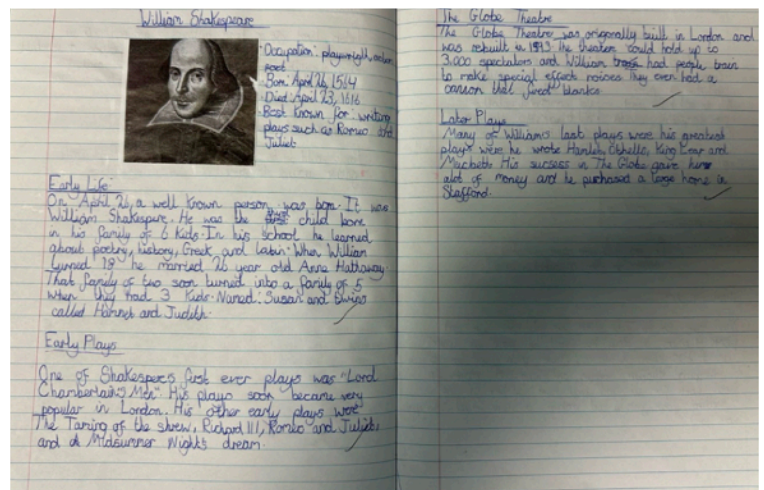 William Shakespeare
Occupation: playwright, actor,
poet
Born: April 26 1564
Died: April 23, 1616
Best known for: writing
plays such as Romeo and
Juliet
Early Life:
On April 26, a well known person was born. It was
William Shakespere. He was the child born
in his family of 6 kids. In his school he learned
about poetry, history, Greek and latin. When William
turned 18 he married 26 year old Anne Hathaway.
That family of two soon turned into a family of 5
when they had 3 kids. Named: Susan and twins
called Hamnet and Judith.
Early Plays
One of Shakesperes first ever plays was "Lord
Chamberlain's Men". His plays soon became very
popular in London. His other early plays were
The Taming of the shrew, Richard III, Romeo and Juliet,
and A Midsummer Night's dream.
The Globe Theatre
The Globe Theatre was originally built in London and
was rebuilt in the theatre could hold up to
3,000 spectators and William had people train
to make special effect noices they even had a
cannon that fired blanks.
Later Plays
Many of William's last plays were his greatest
plays were he wrote Hamlet, Othello, King Lear and
Macbeth. His success in The Globe gave
alot of money and he purchased a large home in
Stafford.